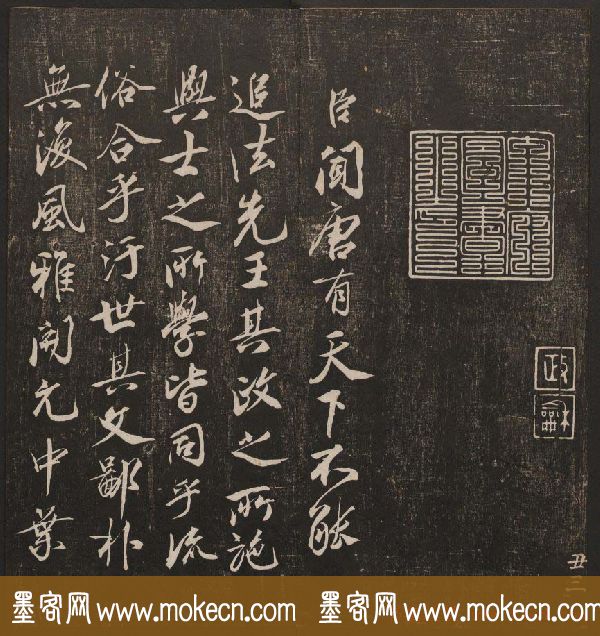 臣聞唐有天下不能
追法先王其政之所施
與士之所學皆同乎流
俗合乎汙世其文鄙朴
無復風雅開元中葉
政龢
丑三
墨客网 www.mokecn.com 墨客网 www.mokecn.com